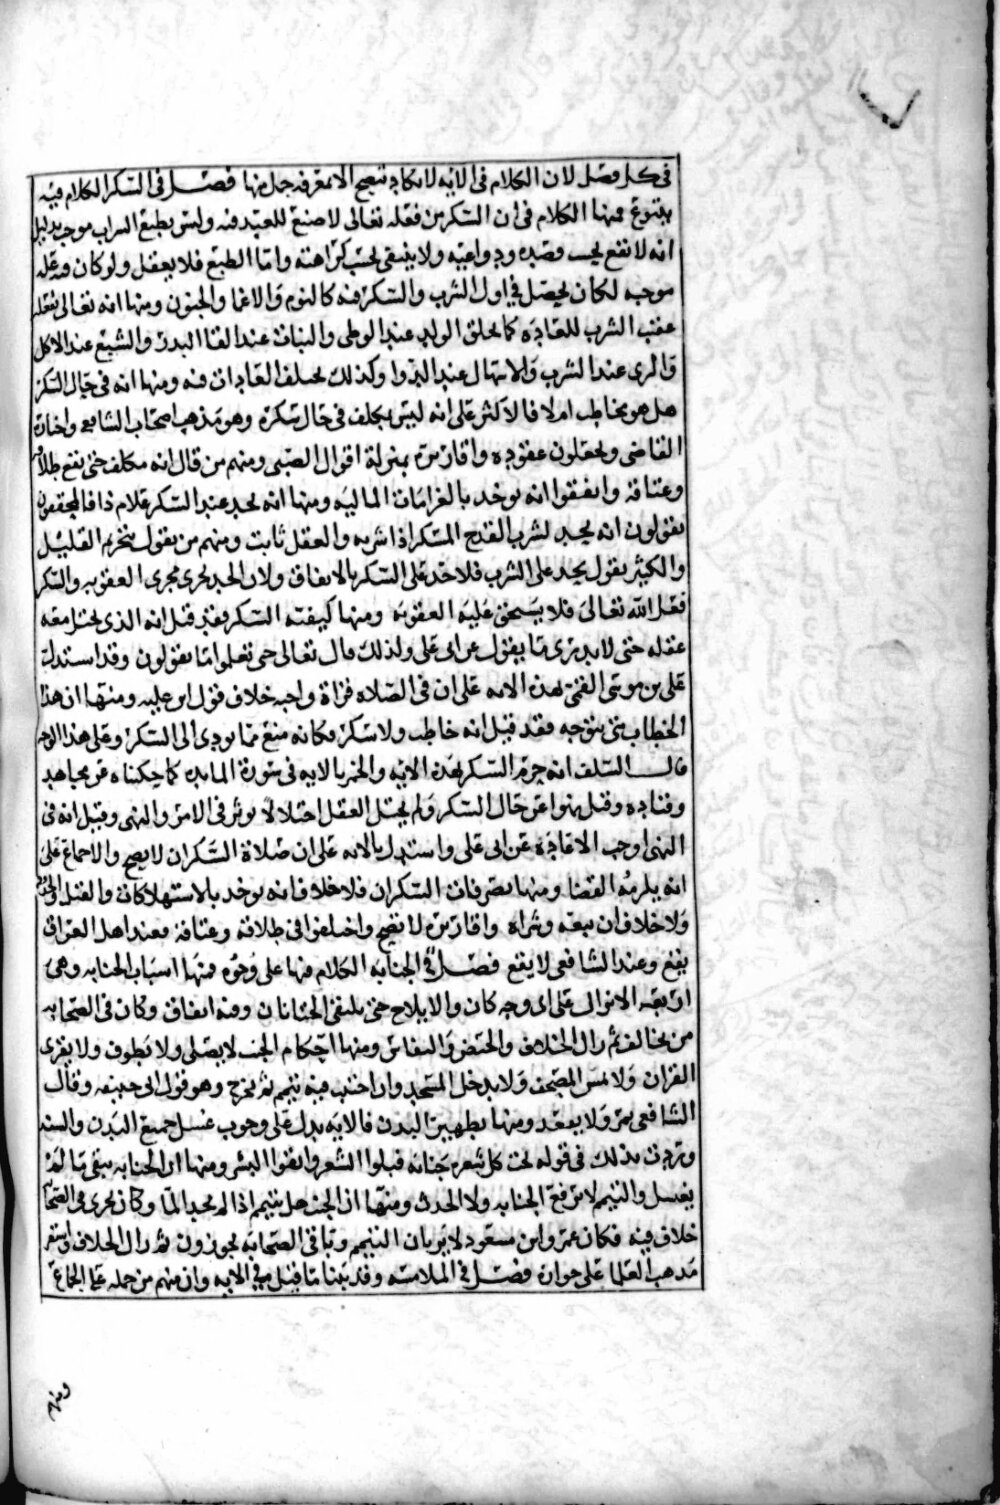 في كل فصل لان الكلام في الايه لا يكاد يتضح الا بمعرفه جمل منها فصل في السكر الكلام فيه
يتنوع فمنها الكلام في ان السكر من فعله تعالى لا صنع للعبد فيه وليس بطبع الشراب موجب بدليل
انه لا يقع بحسب قصده ودواعيه ولا ينتفي بحسب كراهته واما الطبع فلا يعقل ولو كان فيه عله
موجبه لكان يحصل في اول الشرب والسكر فيه كالنوم والاغما والجنون ومنها انه تعالى يفعله
عقيب الشرب للعاده كما يخلق الولد عند الوطى والنبات عند القا البذر والشبع عند الاكل
والري عند الشرب والاسهال عند الدوا وكذلك تختلف العادات فيه ومنها انه في حال السكر
هل هو مخاطب ام لا فالاكثر على انه ليس بمكلف في حال سكره وهو مذهب اصحاب الشافعي واختاره
القاضي ويجعلون عقوده واقاريره بمنزلة اقوال الصبي ومنهم من قال انه مكلف حتى يقع طلاقه
وعتاقه واتفقوا انه يوخذ بالغرامات الماليه ومنها انه يحد عند السكر علام ذا فالمحققون
يقولون انه يحد لشرب القدح المسكر اذا شربه والعقل ثابت ومنهم من يقول بتحريم القليل
والكثير يقول يحد على الشرب فلا حد على السكر بالاتفاق ولان الحد يجري مجرى العقوبه والسكر
فعل الله تعالى فلا يستحق عليه العقوبه ومنها كيفيه السكر فقد قيل انه الذي يختل معه
عقله حتى لا يدري ما يقول عن ابي علي ولذلك قال تعالى حتى تعلموا ما تقولون وقد استدل
علي بن موسى القمي بهذه الايه على ان في الصلاه قراة واجبه خلاف قول ابن عليه ومنها ان هذا
الخطاب متى يتوجه فقد قيل انه خاطب ولا سكر فكانه منع مما يودي الى السكر وعلى هذا الوجه
قال السلف انه حرم السكر بهذه الايه والخمر بالايه في سورة المايده كما حكيناه عن مجاهد
وقتاده وقيل نهوا عن حال السكر ولم يختل العقل اختلالا يوثر في الامر والنهي وقيل انه في
النهي اوجب الاعاده عن ابي علي واستدل بالايه على ان صلاة السكران لا تصح والاجماع على
انه يلزمه القضا ومنها تصرفات السكران فلا خلاف انه يوخذ بالاستهلاكات والقتل
ولا خلاف ان بيعه وشراه واقاريره لا تصح واختلفوا في طلاقه وعتاقه فعند اهل العراق
يقع وعند الشافعي لا يقع فصل في الجنابه الكلام فيها على وجوه فمنها اسباب الجنابه وهي
اربعه الانزال على اي وجه كان والايلاج حتى يلتقي الختانان وفيه اتفاق وكان في الصحابه
من يخالف ثم زال الخلاف والحيض والنفاس ومنها احكام الجنب لا يصلي ولا يطوف ولا يقرى
القران ولا يمس المصحف ولا يدخل المسجد وان اجنب فيه تيمم ثم يخرج وهو قول ابي حنيفه وقال
الشافعي يمر ولا يقعد ومنها تطهير البدن فالايه تدل على وجوب غسل جميع البدن والسنه
وردت بذلك في قوله تحت كل شعره جنابه فبلوا الشعر وانقوا البشر ومنها ان الجنابه تبقى ما لم
يغتسل والتيمم لا يرفع الجنابه ولا الحدث ومنها ان الجنب هل يتيمم اذا لم يجد الما وكان يجري في الصحابة
خلاف فيه فكان عمر وابن مسعود لا يريان التيمم وباقي الصحابه يجوزون ثم زال الخلاف واستقر
مذهب العلما على جوازه فصل في الملامسه وقد بينا ما قيل في الايه وان منهم من حمله على الجماع
ومنهم